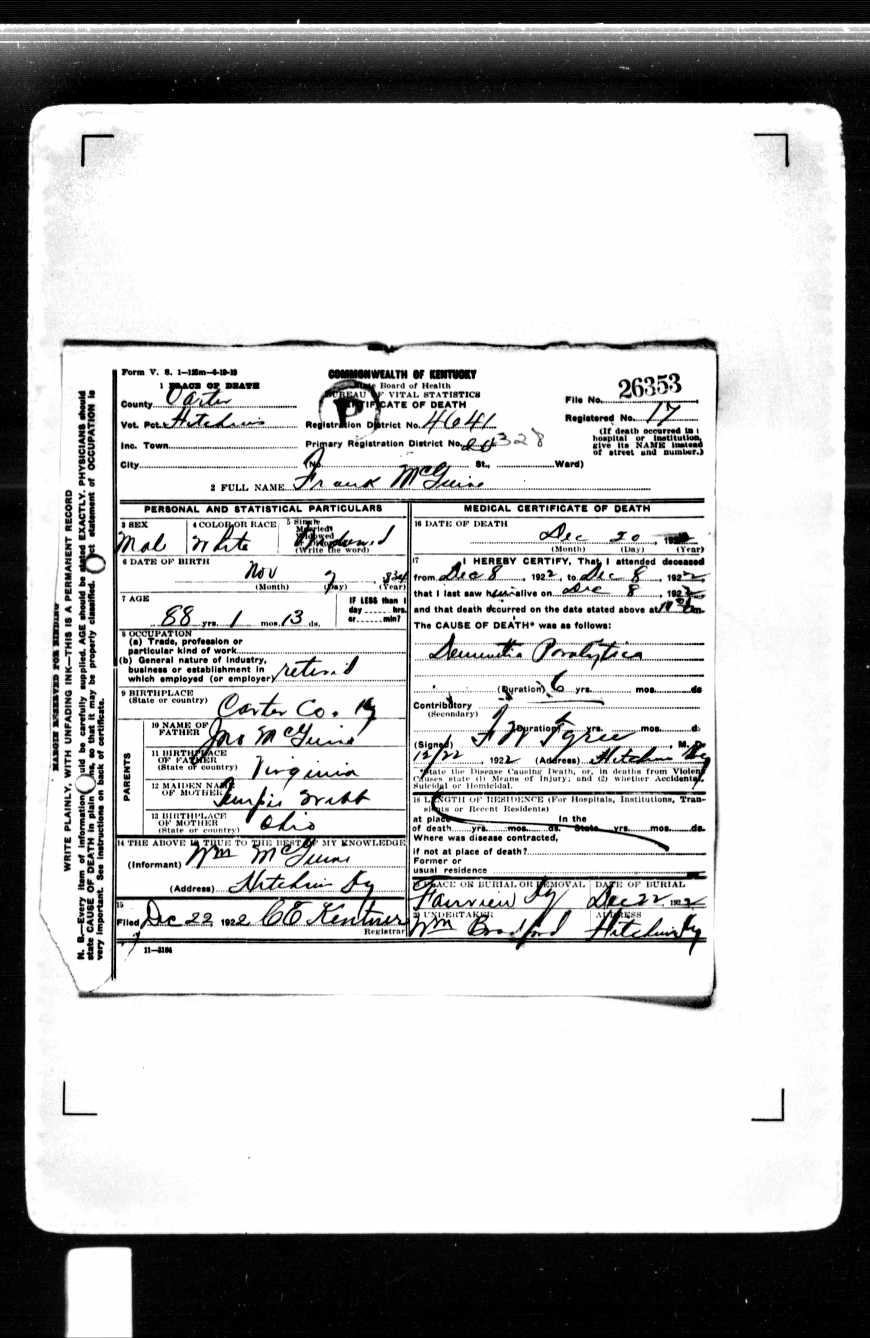 Form V. S. 1—125m—6-19-19
COMMONWEALTH OF KENTUCKY
State Board of Health
BUREAU OF VITAL STATISTICS
CERTIFICATE OF DEATH
P
1 PLACE OF DEATH
County Carter
Vot. Pct. Hitchins
Inc. Town
City
Registration District No. 4641
Primary Registration District No. 328
(No. St., Ward)
File No. 26353
Registered No. 17
(If death occurred in a hospital or institution, give its NAME instead of street and number.)
2 FULL NAME Frank McGuire
PERSONAL AND STATISTICAL PARTICULARS
3 SEX
Male
4 COLOR OR RACE
White
5 Single
Married
Widowed
or Divorced
(Write the word)
Widowed
6 DATE OF BIRTH
Nov 7, 834
(Month) (Day) (Year)
7 AGE
88 yrs. 1 mos. 13 ds.
IF LESS than 1
day ...... hrs.
or ...... min?
8 OCCUPATION
(a) Trade, profession or
particular kind of work
(b) General nature of industry,
business or establishment in
which employed (or employer) retired
9 BIRTHPLACE
(State or country)
Carter Co. Ky
PARENTS
10 NAME OF
FATHER
Jno McGuire
11 BIRTHPLACE
OF FATHER
(State or country)
Virginia
12 MAIDEN NAME
OF MOTHER
Webb
13 BIRTHPLACE
OF MOTHER
(State or country)
Ohio
14 THE ABOVE IS TRUE TO THE BEST OF MY KNOWLEDGE
(Informant) Wm McGuire
(Address) Hitchins Ky
15
Filed Dec 22, 1922 CE
Registrar
11—3184
MEDICAL CERTIFICATE OF DEATH
16 DATE OF DEATH
Dec 20, 1922
(Month) (Day) (Year)
17 I HEREBY CERTIFY, That I attended deceased
from Dec 8, 1922, to Dec 8, 1922
that I last saw him alive on Dec 8, 1922
and that death occurred on the date stated above at m.
The CAUSE OF DEATH* was as follows:
Dementia Paralytica
(Duration) 6 yrs. mos. ds
Contributory
(Secondary)
(Duration) yrs. mos. ds
(Signed) F W Tyree M. D.
12/22, 1922 (Address) Hitchins Ky
*State the Disease Causing Death, or, in deaths from Violent
Causes state (1) Means of Injury; and (2) whether Accidental,
Suicidal or Homicidal.
18 LENGTH OF RESIDENCE (For Hospitals, Institutions, Tran-
sients or Recent Residents)
at place In the
of death yrs. mos. ds. State yrs. mos. ds.
Where was disease contracted,
if not at place of death?
Former or
usual residence
19 PLACE OR BURIAL OR REMOVAL
Fairview Ky
DATE OF BURIAL
Dec 22, 1922
20 UNDERTAKER
Wm Bradford
ADDRESS
Hitchins Ky
MARGIN RESERVED FOR BINDING
WRITE PLAINLY, WITH UNFADING INK—THIS IS A PERMANENT RECORD
N. B.—Every item of information should be carefully supplied. AGE should be stated EXACTLY. PHYSICIANS should
state CAUSE OF DEATH in plain terms, so that it may be properly classified. Exact statement of OCCUPATION is
very important. See instructions on back of certificate.